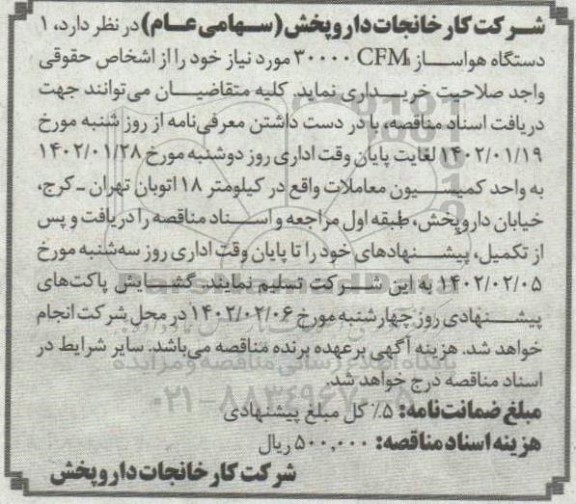 شرکت کارخانجات داروپخش (سهامی عام) در نظر دارد، ۱
دستگاه هواساز ۳۰۰۰۰ CFM مورد نیاز خود را از اشخاص حقوقی
واجد صلاحیت خریداری نماید. کلیه متقاضیان می‌توانند جهت
دریافت اسناد مناقصه، با در دست داشتن معرفی‌نامه از روز شنبه مورخ
۱۴۰۲/۰۱/۱۹ لغایت پایان وقت اداری روز دوشنبه مورخ ۱۴۰۲/۰۱/۲۸
به واحد کمیسیون معاملات واقع در کیلومتر ۱۸ اتوبان تهران - کرج،
خیابان داروپخش، طبقه اول مراجعه و اسناد مناقصه را دریافت و پس
از تکمیل، پیشنهادهای خود را تا پایان وقت اداری روز سه‌شنبه مورخ
۱۴۰۲/۰۲/۰۵ به این شرکت تسلیم نمایند. گشایش پاکت‌های
پیشنهادی روز چهارشنبه مورخ ۱۴۰۲/۰۲/۰۶ در محل شرکت انجام
خواهد شد. هزینه آگهی برعهده برنده مناقصه می‌باشد. سایر شرایط در
اسناد مناقصه درج خواهد شد.
مبلغ ضمانت‌نامه: ۵٪ کل مبلغ پیشنهادی
هزینه اسناد مناقصه: ۵۰۰,۰۰۰ ریال
شرکت کارخانجات داروپخش